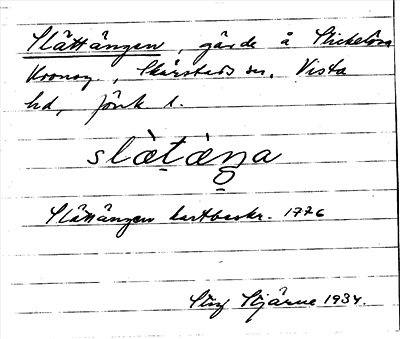 Slättängen, gärde å Stickelösa
Kronog., Skärstads sn, Vista
hd, Jönk l.
slàtàŋa
Slättängen kartbeskr. 1776
Stig Stjärne 1934.